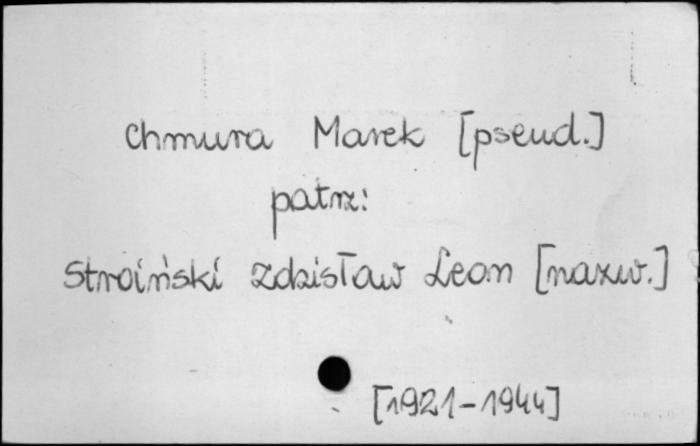 Chmura Marek [pseud.]
patrz:
Stroiński Zdzisław Leon [nazw.]
[1921-1944]